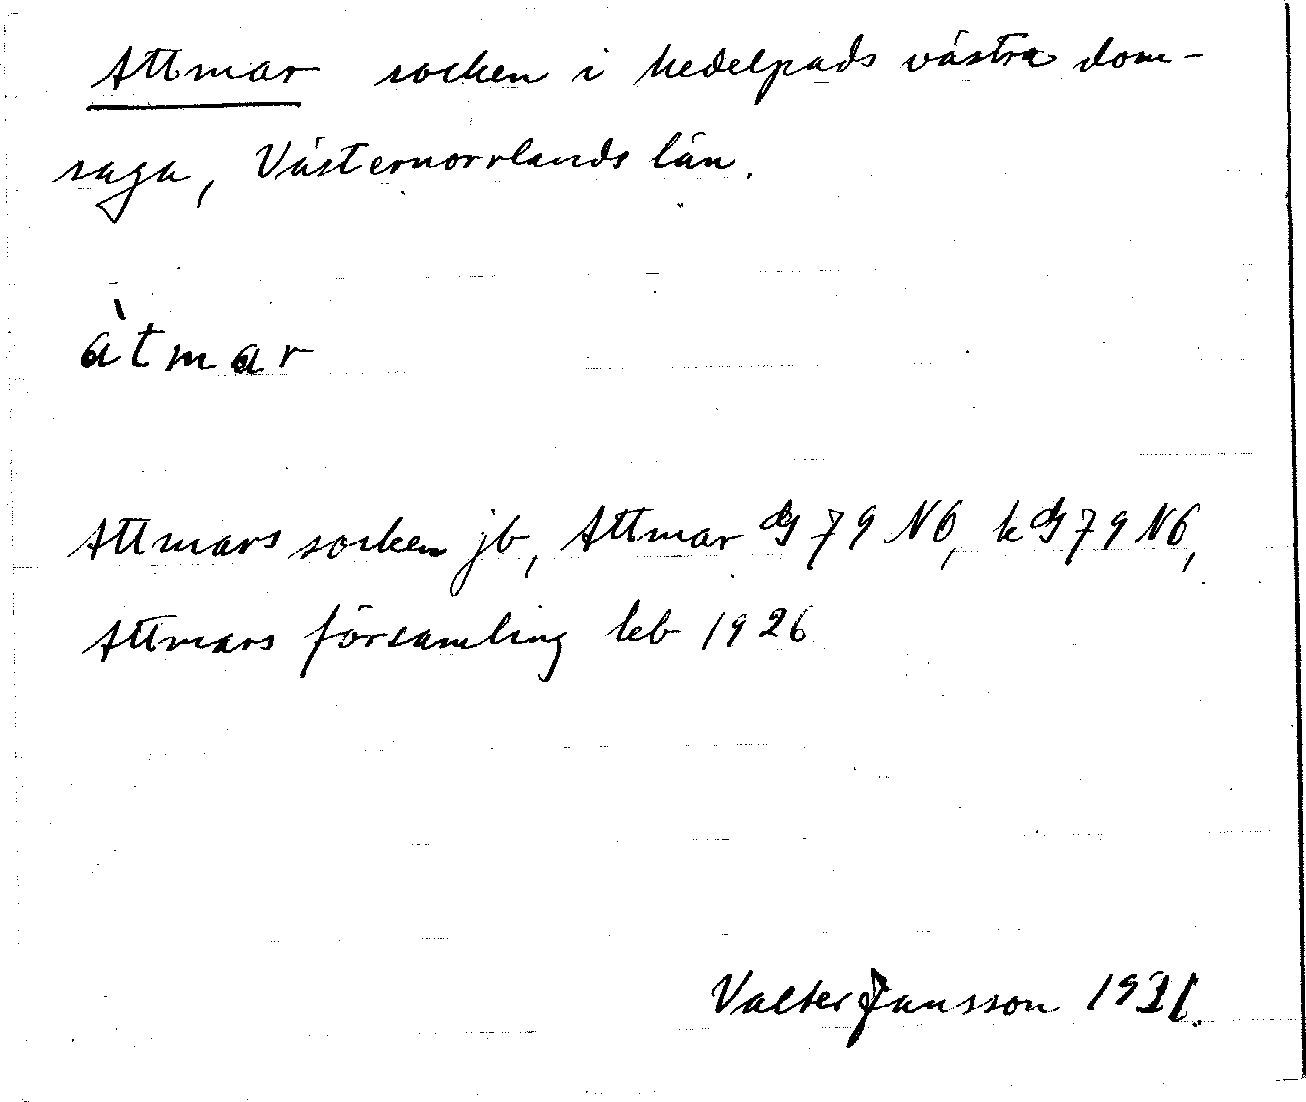 Attmar socken i Medelpads västra dom-
saga, Västernorrlands län.
àtmar
Attmars socken jb, Attmar GS 79 NO, k GS 79 NO,
Attmars församling leb 1926
Valter Jansson 1931.